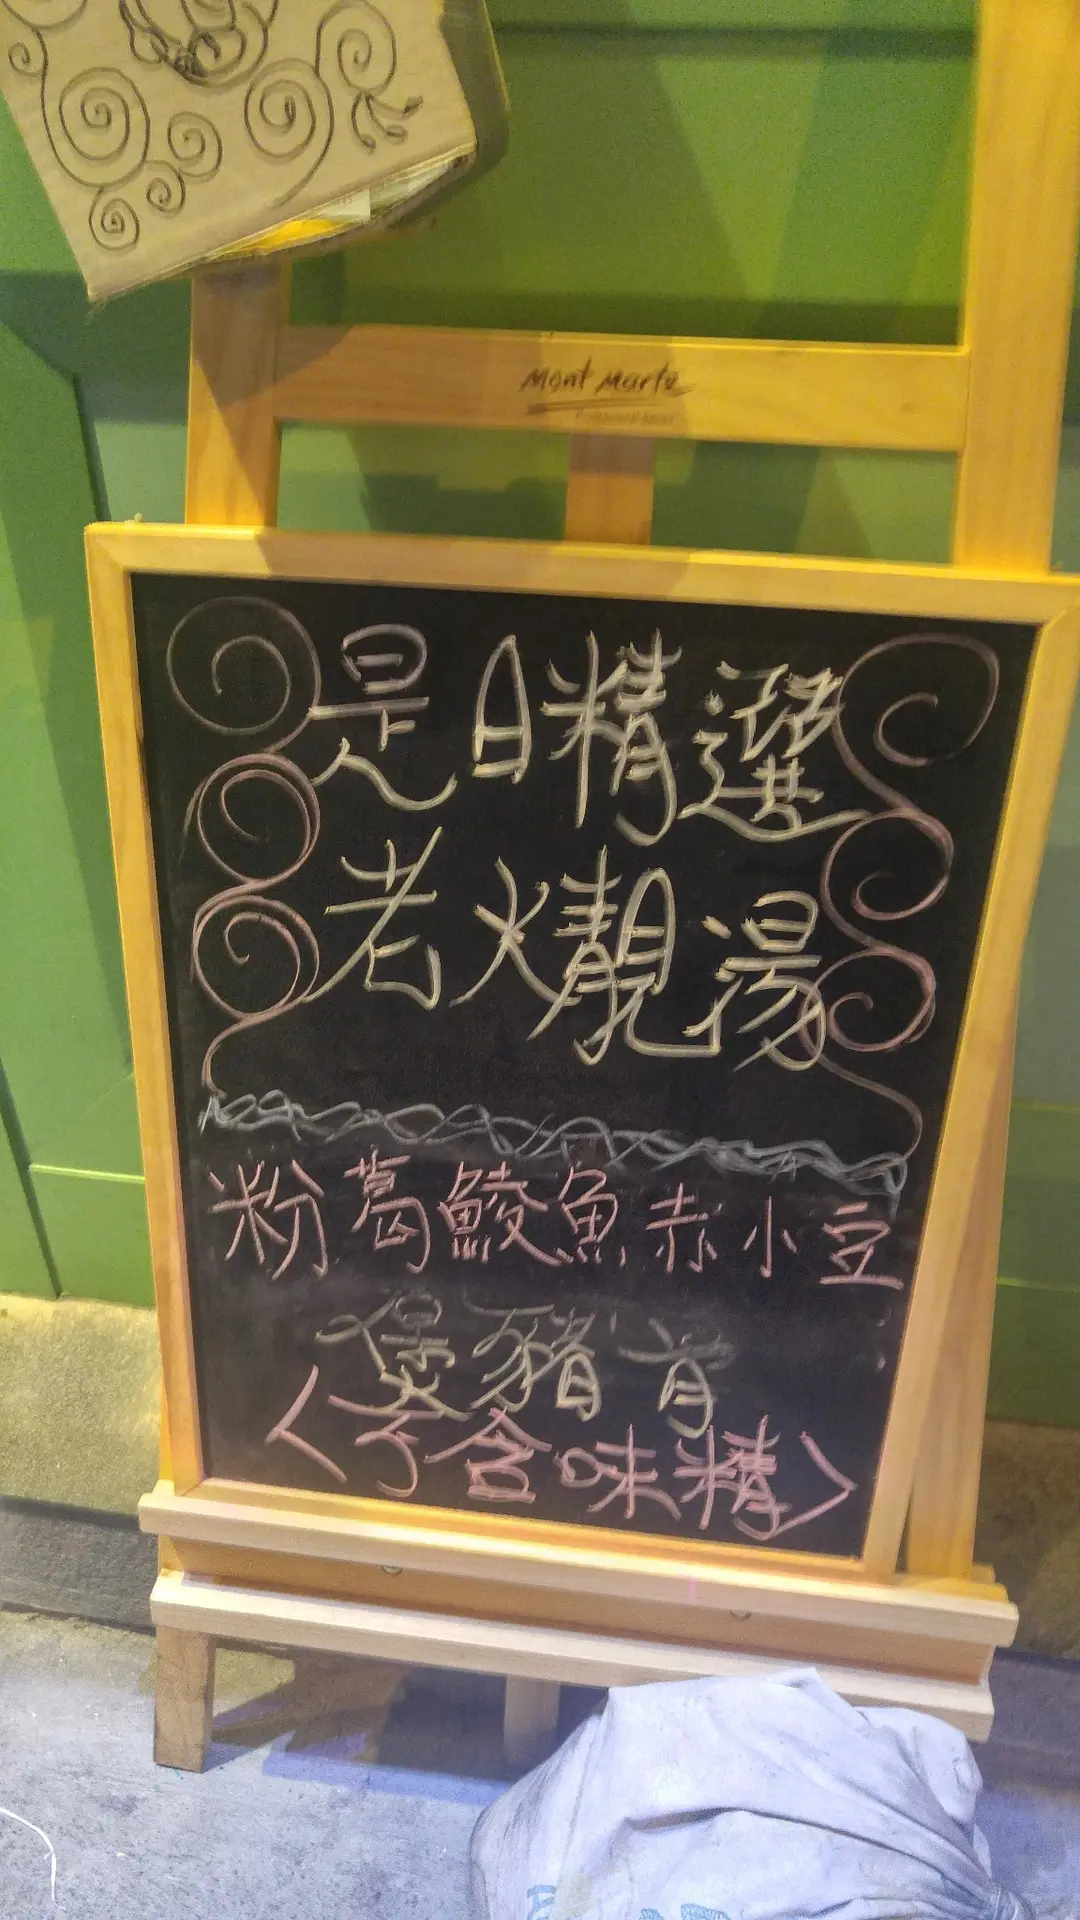 Mont Marte
是日精選
老火靚湯
粉葛鯪魚赤小豆
煲豬肯
〈不含味精〉